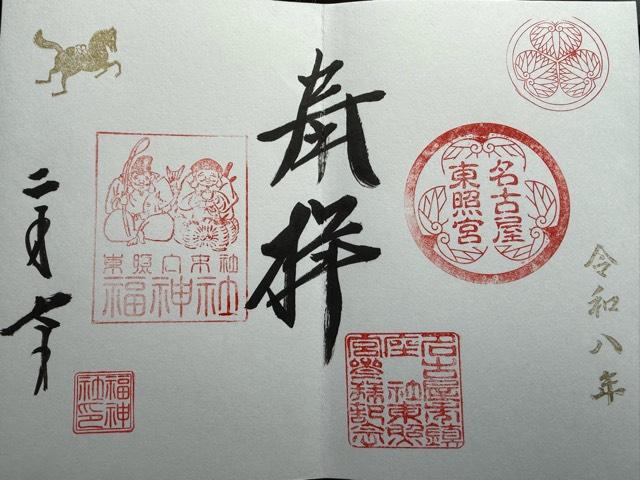 令和八年
名古屋
東照宮
奉拝
名古屋市鎮
座社東照
宮參拜記念
東照宮末社
福神社
福神
社印
二月七日